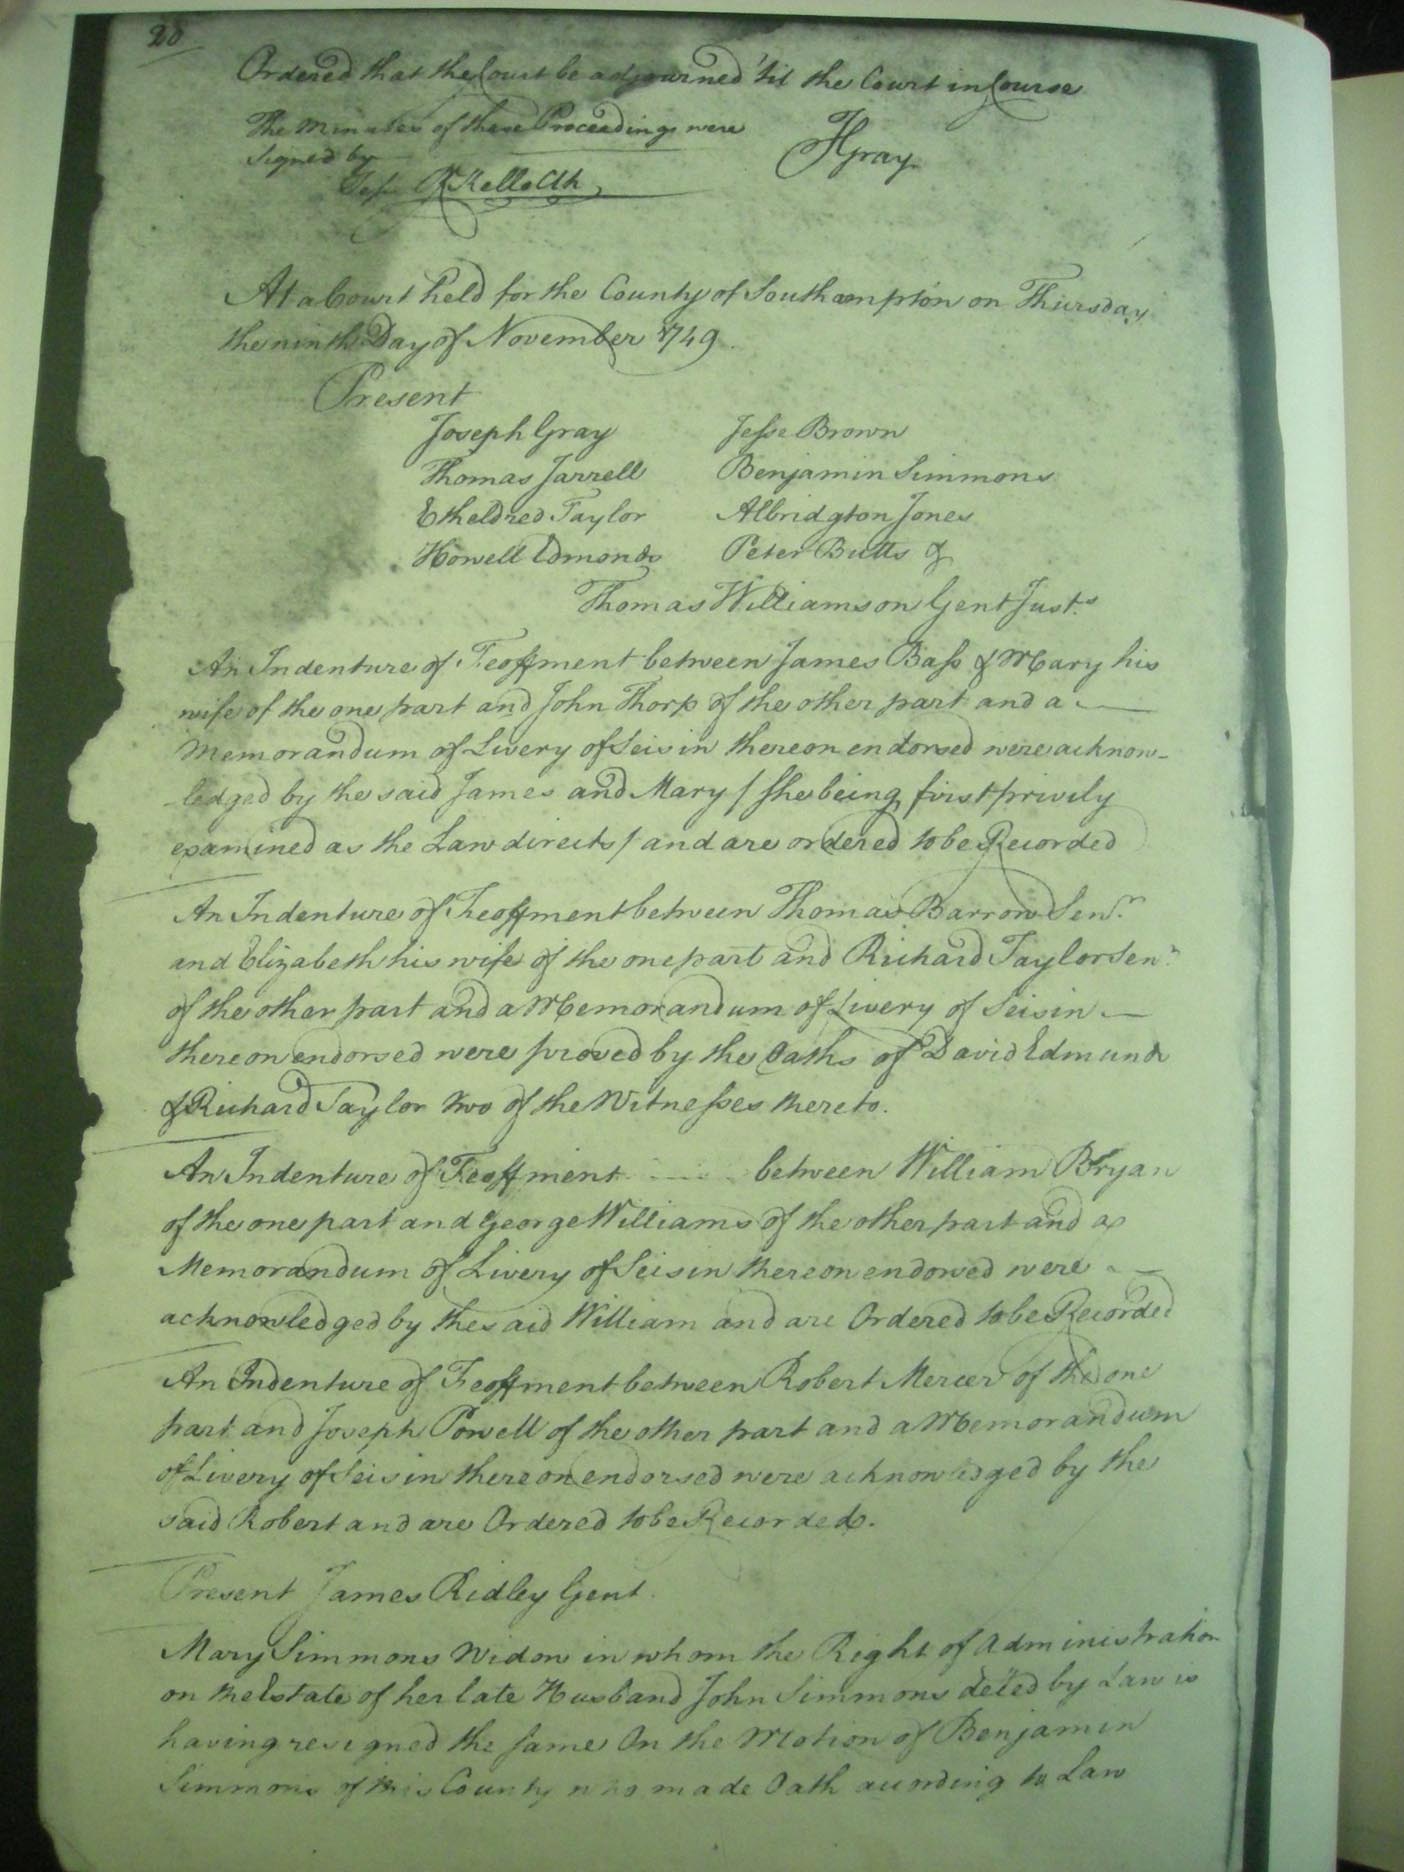 20
Ordered that the Court be adjourned 'til the Court in Course
The Minutes of these Proceedings were
signed by
JGray
Test R Kello Clk
At a Court held for the County of Southampton on Thursday
the ninth Day of November 1749.
Present
Joseph Gray Jesse Brown
Thomas Jarrell Benjamin Simmons
Etheldred Taylor Albridgton Jones
Howell Edmonds Peter Butts &
Thomas Williamson Gent Just.s
An Indenture of Feoffment between James Bass & Mary his
wife of the one part and John Thorp of the other part and a
Memorandum of Livery of Seisin thereon endorsed were acknow-
ledged by the said James and Mary / she being first privily
examined as the Law directs / and are ordered to be Recorded
An Indenture of Feoffment between Thomas Barrow Sen.r
and Elizabeth his wife of the one part and Richard Taylor Sen.r
of the other part and a Memorandum of Livery of Seisin
thereon endorsed were proved by the Oaths of David Edmunds
& Richard Taylor two of the Witnesses thereto.
An Indenture of Feoffment between William Bryan
of the one part and George Williams of the other part and a
Memorandum of Livery of Seisin thereon endorsed were
acknowledged by the said William and are Ordered to be Recorded
An Indenture of Feoffment between Robert Mercer of the one
part and Joseph Powell of the other part and a Memorandum
of Livery of Seisin thereon endorsed were acknowledged by the
said Robert and are Ordered to be Recorded.
Present James Ridley Gent.
Mary Simmons Widow in whom the Right of Administration
on the Estate of her late Husband John Simmons deced by Law is
having resigned the same On the Motion of Benjamin
Simmons of this County who made Oath according to Law